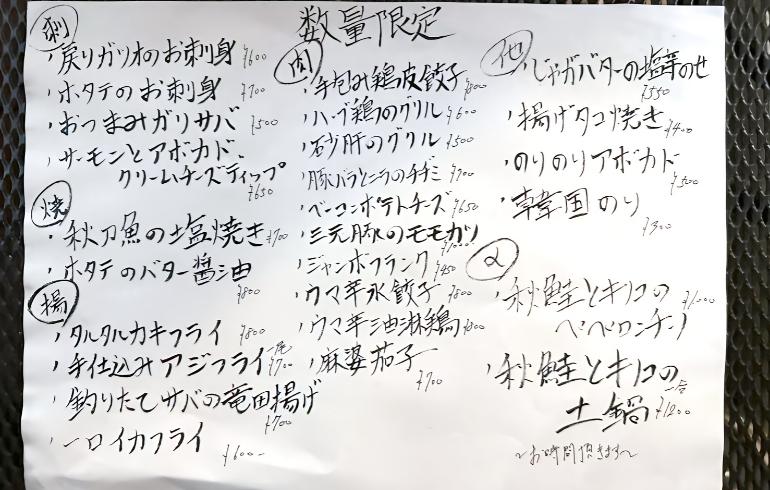 数量限定
刺
・戻りガツオのお刺身 ¥600
・ホタテのお刺身 ¥700
・おつまみガリサバ ¥500
・サーモンとアボカド、
クリームチーズディップ ¥650
焼
・秋刀魚の塩焼き ¥700
・ホタテのバター醤油 ¥800
揚
・タルタルカキフライ ¥800
・手仕込みアジフライ 一尾 ¥700
・釣りたてサバの竜田揚げ ¥700
・一口イカフライ ¥600-
肉
・手包み鶏皮餃子 ¥800
・ハーブ鶏のグリル ¥600
・砂肝のグリル ¥500
・豚バラとニラのチヂミ ¥700
・ベーコンポテトチーズ ¥650
・三元豚のモモカツ ¥1000
・ジャンボフランク ¥450
・ウマ辛水餃子 ¥800
・ウマ辛油淋鶏 ¥800
・麻婆茄子 ¥700
他
・じゃがバターの塩辛のせ ¥550
・揚げタコ焼き ¥400
・のりのりアボカド ¥500
・韓国のり ¥300
〆
・秋鮭とキノコの ¥1000
ペペロンチーノ
・秋鮭とキノコの
土鍋 一合 ¥1200
〜お時間頂きます〜